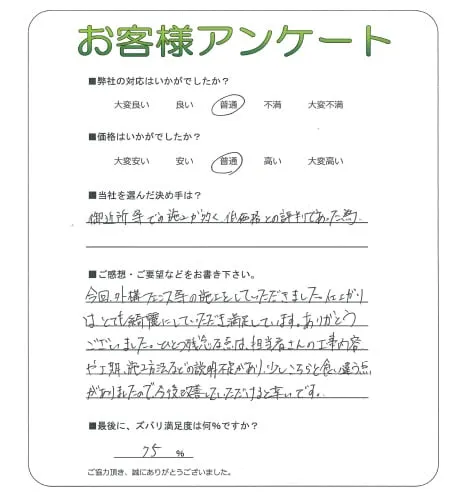 お客様アンケート
■弊社の対応はいかがでしたか？
大変良い 良い 普通 不満 大変不満
■価格はいかがでしたか？
大変安い 安い 普通 高い 大変高い
■当社を選んだ決め手は？
御近所等での施工が多く、低価格との評判であった為。
■ご感想・ご要望などをお書き下さい。
今回、外構フェンス等の施工をしていただきました。仕上がり
はとても綺麗にしていただき満足しています。ありがとう
ございました。ひとつ残念な点は、担当者さんの工事内容
や工期、施工方法などの説明不足があり、少しこちらと食い違う点
がありましたので今後改善していただけると幸いです。
■最後に、ズバリ満足度は何％ですか？
75 ％
ご協力頂き、誠にありがとうございました。